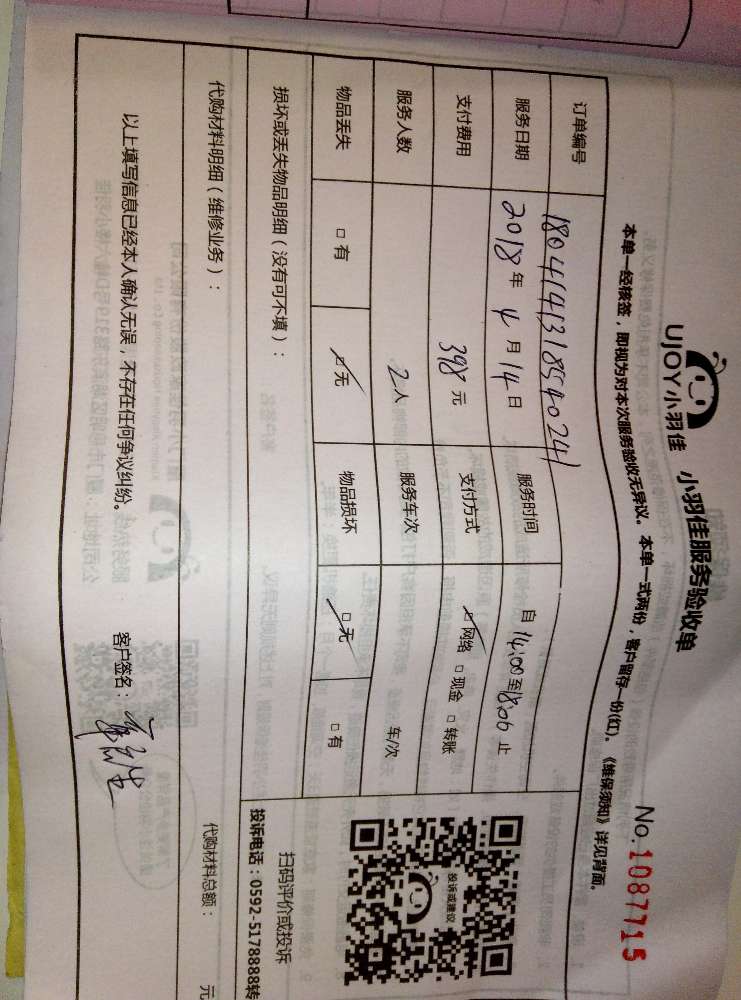 UJOY小羽佳 小羽佳服务验收单
No.10877115
本单一经核签，即视为对本次服务验收无异议。本单一式两份，客户留存一份(红)。《维保须知》详见背面。
订单编号 180414318540241
服务日期 2018年4月14日 服务时间 自14:00至18:00止
支付费用 398元 支付方式 ☑网络 □现金 □转账
服务人数 2人 服务车次 车/次
物品丢失 □有 ☑无 物品损坏 ☑无 □有
投诉或建议
扫码评价或投诉
投诉电话：0592-5178888转
损坏或丢失物品明细（没有可不填）：
代购材料明细（维修业务）： 代购材料总额： 元
以上填写信息已经本人确认无误，不存在任何争议纠纷。 客户签名：